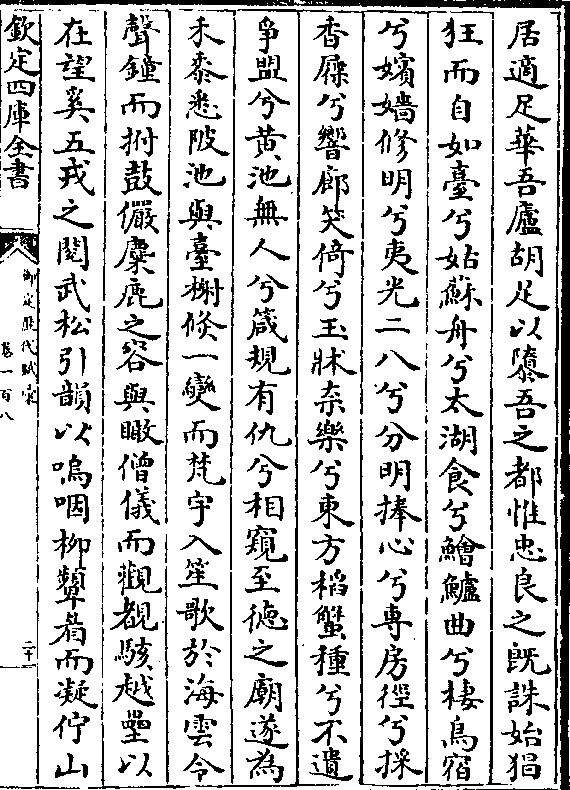 居適足華吾廬胡足以隳吾之都惟忠良之既誅始猖
狂而自如臺兮姑蘇舟兮太湖食兮鱠鱸曲兮棲烏宿
兮嬪嬙修明兮夷光二八兮分明捧心兮專房徑兮採
香屧兮響廊笑倚兮玉牀奈樂兮東方稻蟹種兮不遺
爭盟兮黄池無人兮箴規有仇兮相窺至徳之廟遂為
禾黍悉陂池與臺榭倐一變而梵宇入笙歌於海雲令
聲鐘而拊鼓儼麋鹿之容與瞰僧儀而觀覩駭越壘以
在望奚五戎之閱武松引韻以嗚咽栁顰眉而凝佇山
欽定四庫全書
御定歷代賦彚
卷一百八
二十